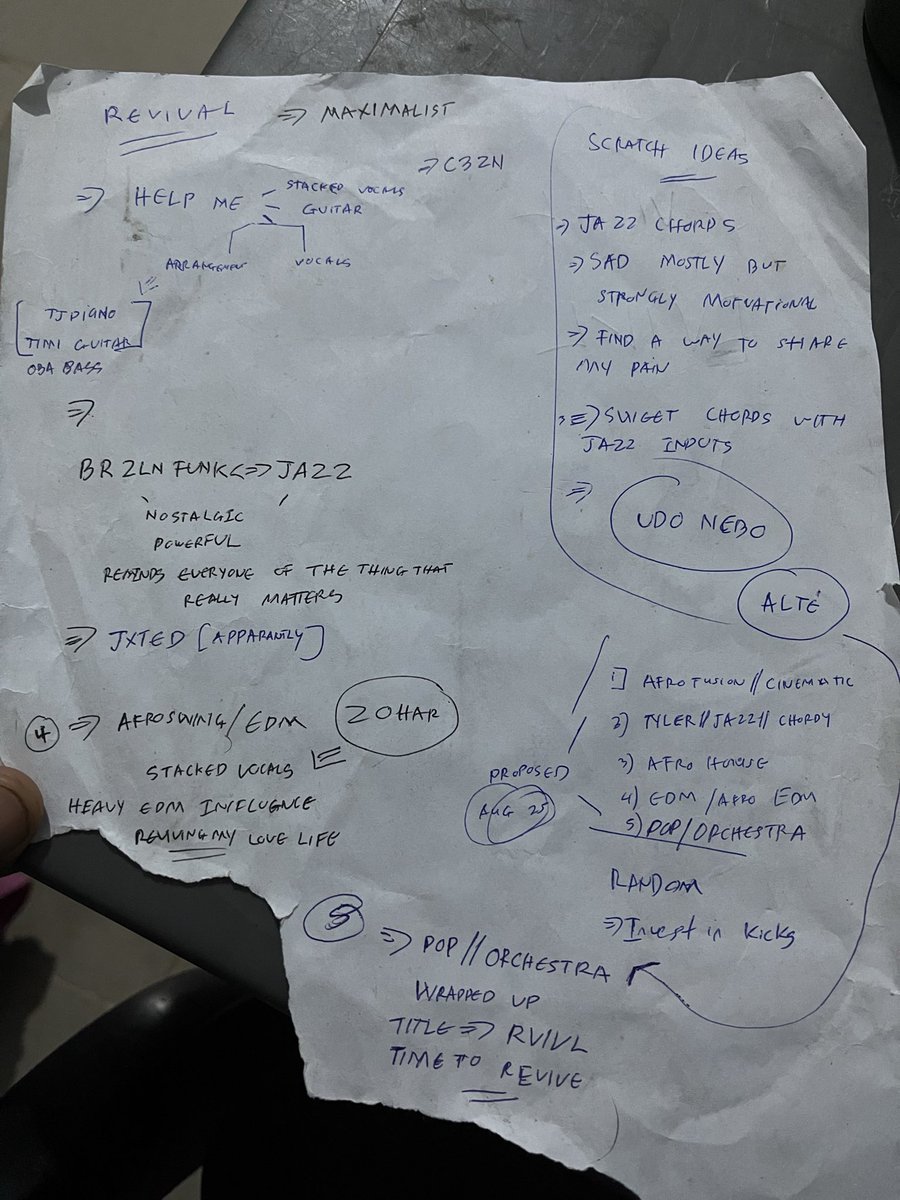 REVIVAL ⇒ MAXIMALIST
⇒ C32N
⇒ HELP ME - STACKED VOCALS
- GUITAR
ARRANGEMENT VOCALS
TJ PIANO
TIMI GUITAR
OBA BASS
⇒
BRZLN FUNK <=> JAZZ
NOSTALGIC
POWERFUL
REMINDS EVERYONE OF THE THING THAT
REALLY MATTERS
⇒ JXTED [APPARANTLY]
4 ⇒ AFROSWING/EDM
ZOHAR
STACKED VOCALS
HEAVY EDM INFLUENCE
REVIVING MY LOVE LIFE
5 ⇒ POP//ORCHESTRA
WRAPPED UP
TITLE ⇒ RVIVL
TIME TO REVIVE
SCRATCH IDEAS
⇒ JAZZ CHORDS
⇒ SAD MOSTLY BUT
STRONGLY MOTVATIONAL
⇒ FIND A WAY TO SHARE
MY PAIN
⇒ SWEET CHORDS WITH
JAZZ INPUTS
⇒ UDO NEBO
ALTÉ
PROPOSED
AUG 25
1] AFROFUSION//CINEMATIC
2) TYLER//JAZZ//CHORDY
3) AFRO HOUSE
4) EDM/AFRO EDM
5) POP/ORCHESTRA
RANDOM
⇒ Invest in Kicks